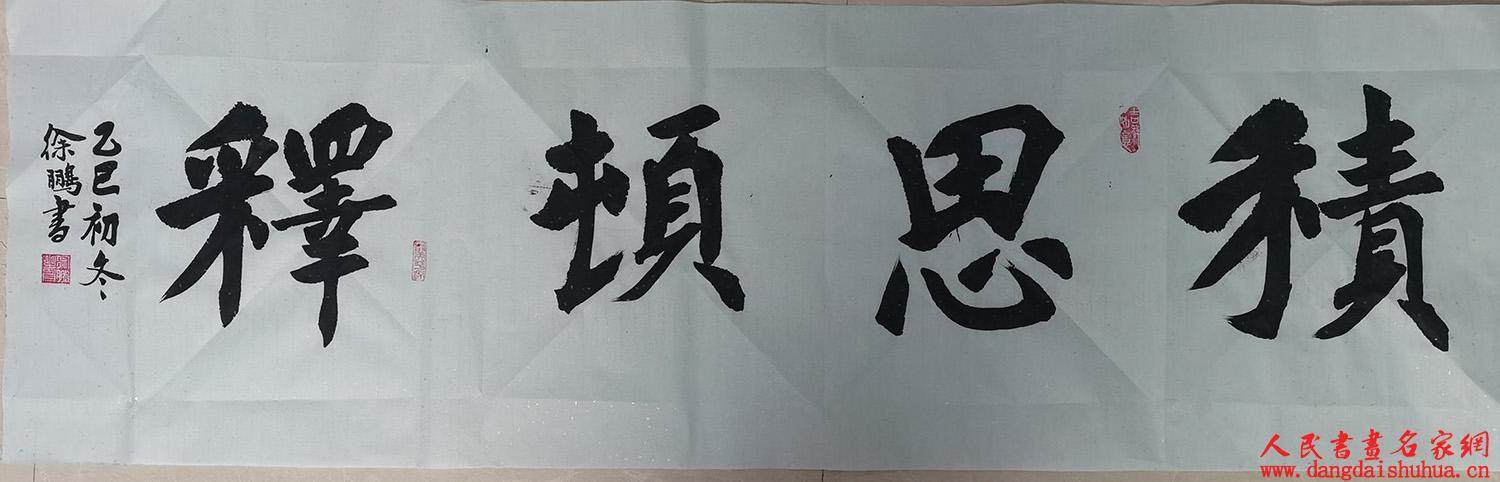 積思頓釋
乙巳初冬
徐鵬書
人民書畫名家網
www.dangdaishuhua.cn